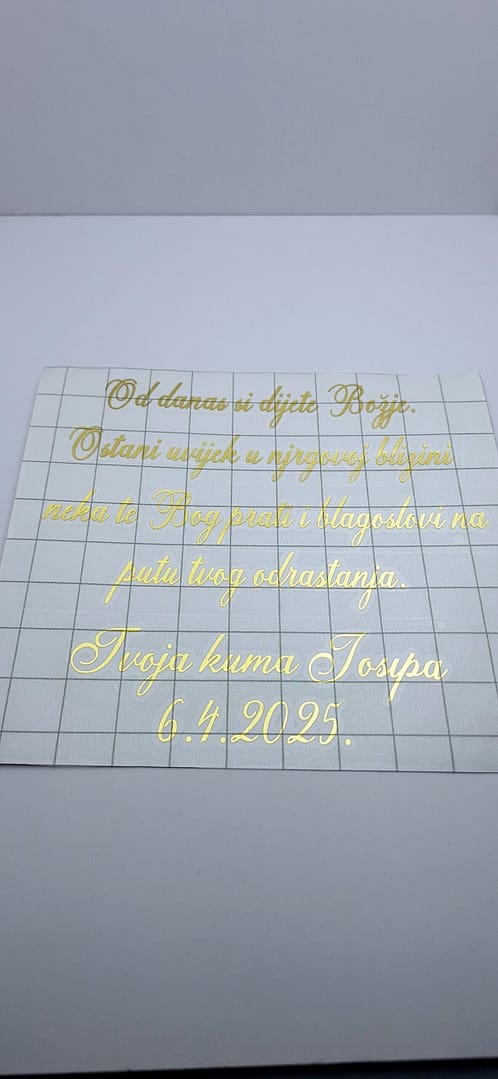 Od danas si dijete Božje.
Ostani uvijek u njegovoj blizini
neka te Bog prati i blagoslovi na
putu tvog odrastanja.
Tvoja kuma Josipa
6.4.2025.